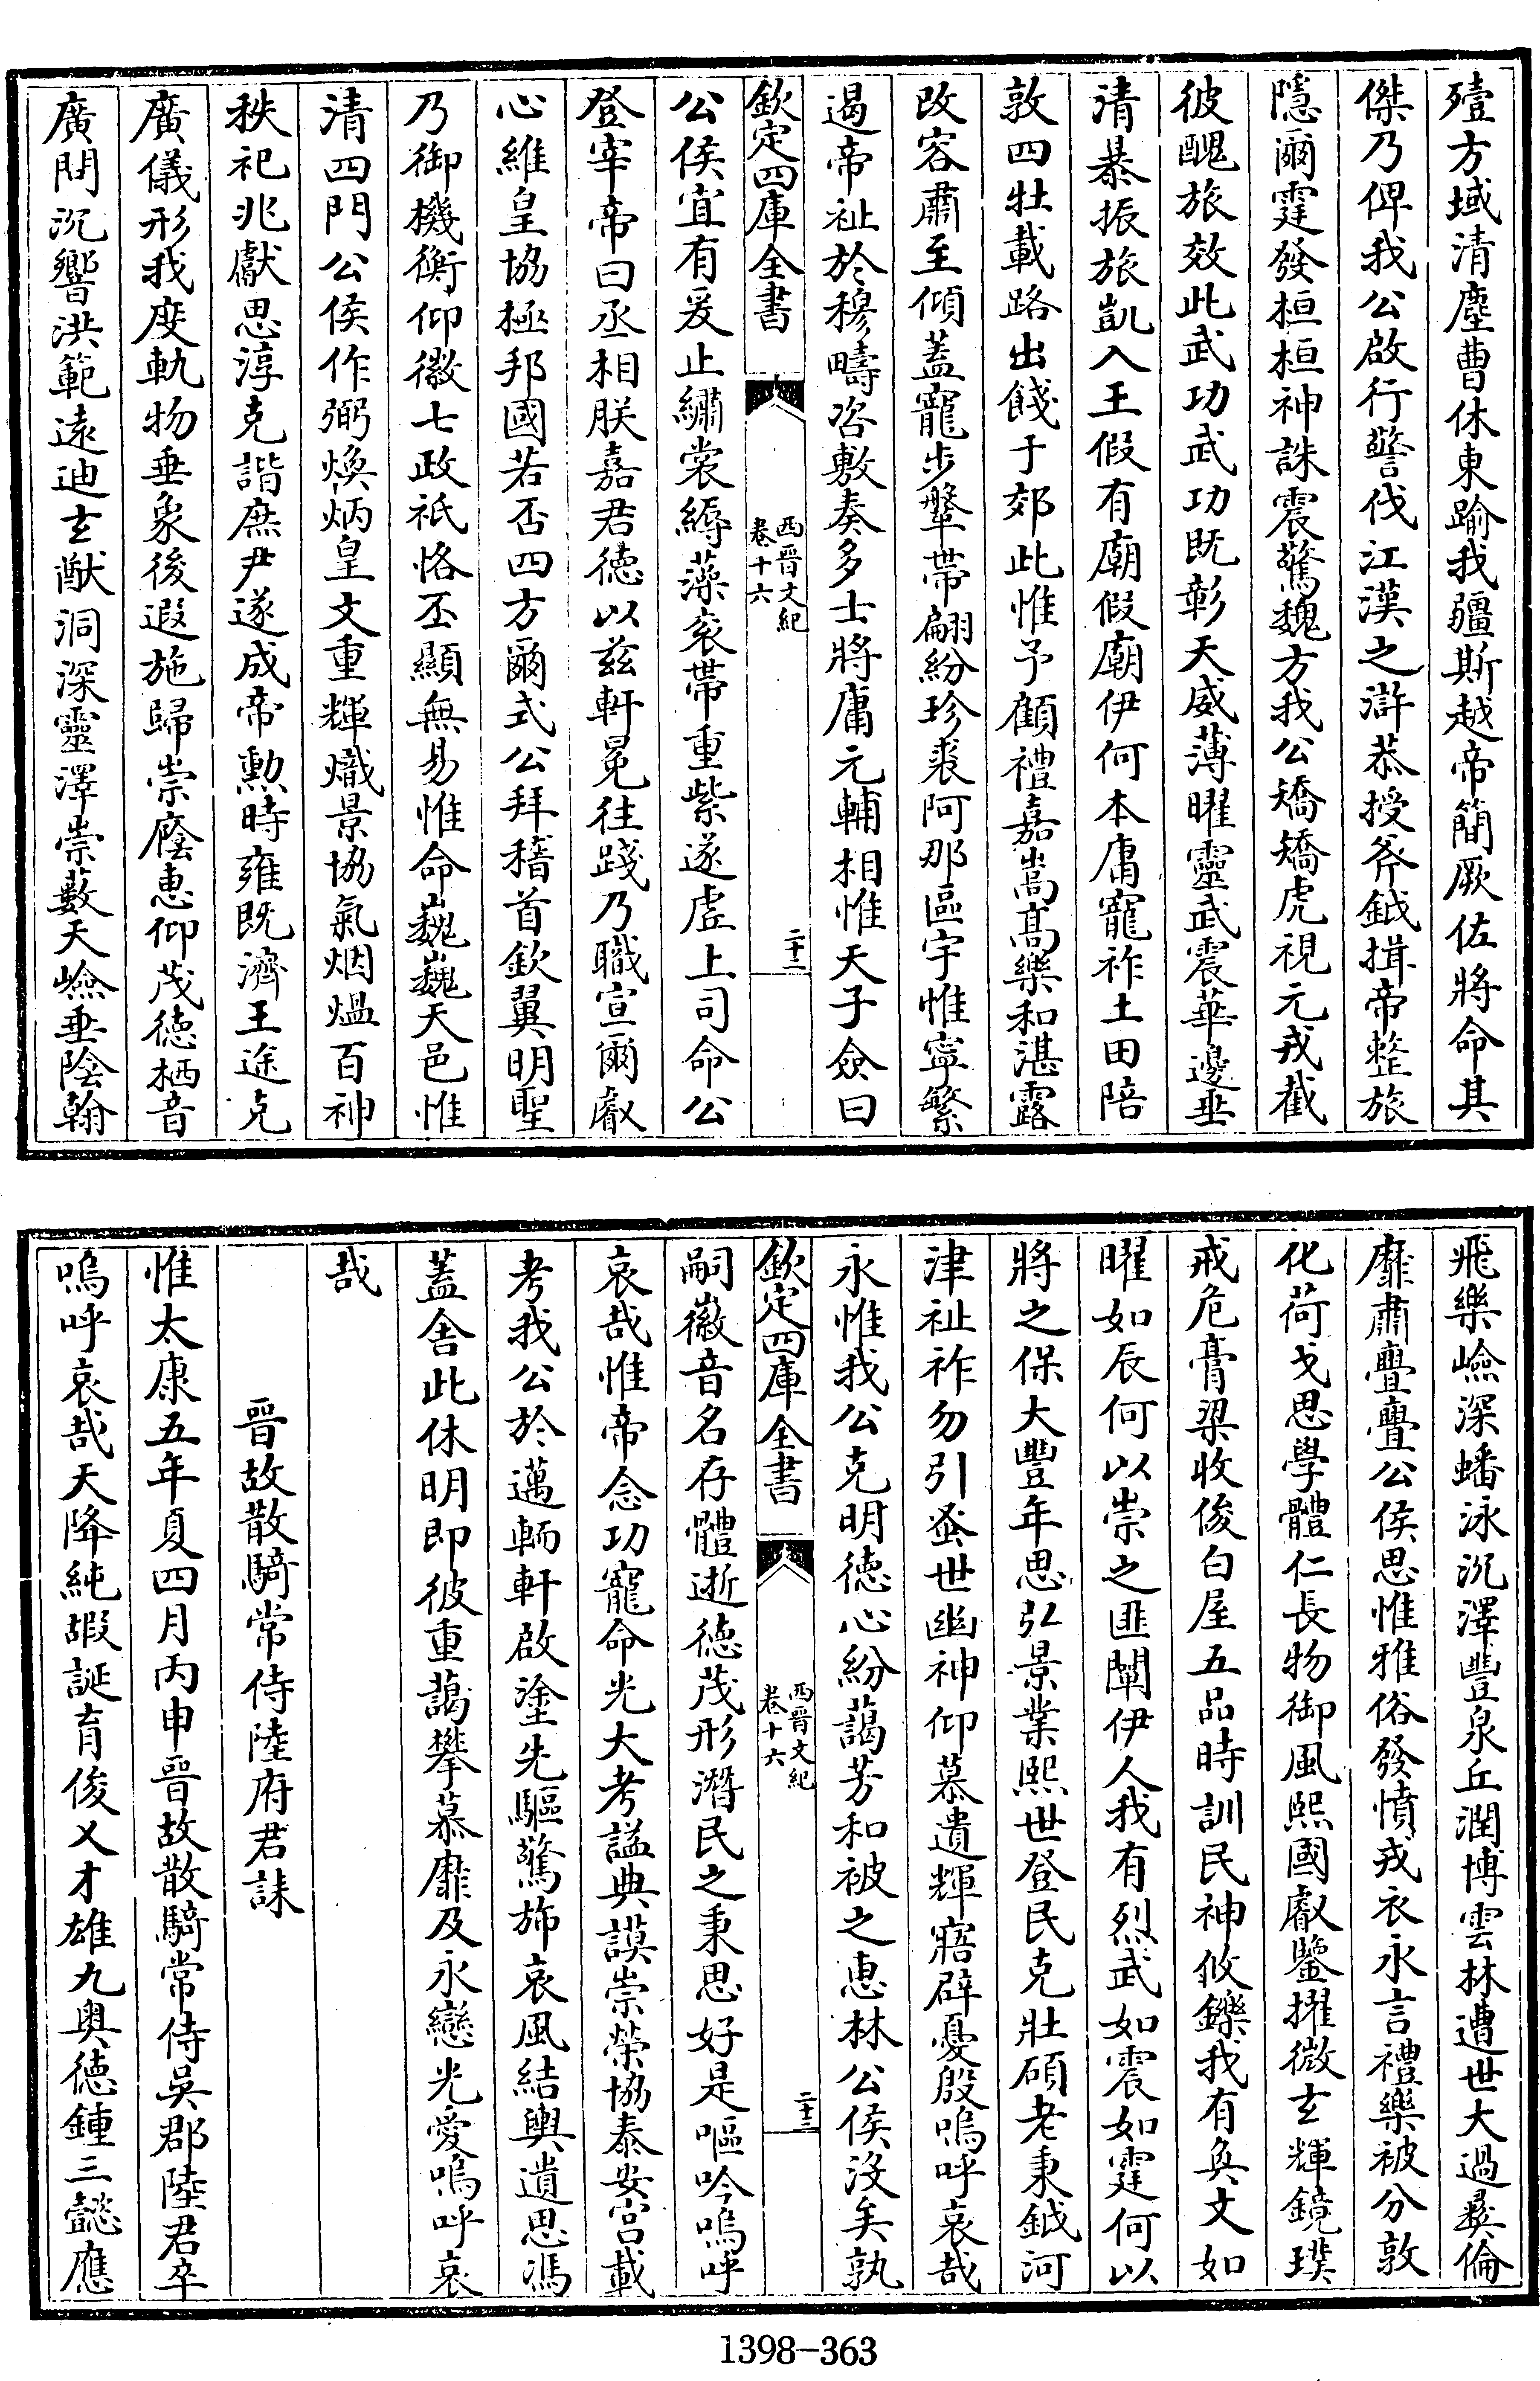 殪方域清塵曹休東踰我疆斯越帝簡厥佐將命其
傑乃俾我公啟行警伐江漢之滸恭授斧鉞揖帝整旅
隱爾霆發桓桓神誅震驚魏方我公矯矯虎視元戎截
彼醜旅效此武功武功既彰天威薄曜靈武震華邊垂
清暴振旅凱入王假有廟假廟伊何本庸寵祚土田陪
敦四牡載路出餞于郊此惟予顧禮嘉嵩高樂和湛露
改容肅至傾蓋寵步鞶帶翩紛珍裘阿那區宇惟寧繁
遏帝祉於穆疇咨敷奏多士將庸元輔相惟天子僉曰
欽定四庫全書
西晉文紀
卷十六
二十二
公侯宜有爰止繡裳縟藻衮帶重紫遂虛上司命公
登宰帝曰丞相朕嘉君德以兹軒冕往踐乃職宣爾獻
心維皇協極邦國若否四方爾式公拜稽首欽翼明聖
乃御機衡仰徽七政祇恪丕顯無易惟命巍巍天邑惟
清四門公侯作弼煥炳皇文重輝熾景協氣烟熅百神
秩祀兆獻思淳克諧庶尹遂成帝勳時雍既濟王途克
廣儀形我度軌物垂象後遐施歸崇廕惠仰茂德栖音
廣閈沉響洪範遠迪玄猷洞深靈澤崇藪天嶮垂陰翰
飛樂嶮深蟠泳沉澤豐泉丘潤博雲林遭世大過彜倫
靡肅亹亹公侯思惟雅俗發憤戎衣永言禮樂被分敦
化荷戈思學體仁長物御風熙國叡鑒擢微玄輝鏡璞
戒危膏粱收俊白屋五品時訓民神攸鑠我有奐文如
曜如辰何以崇之匪闡伊人我有烈武如震如霆何以
將之保大豐年思弘景業熙世登民克壯碩老秉鉞河
津祉祚勿引發世幽神仰慕遺輝寤辟憂殷嗚呼哀哉
永惟我公克明德心紛藹芳和被之惠林公侯沒矣孰
欽定四庫全書
西晉文紀
卷十六
二十三
嗣徽音名存體逝德茂形潛民之秉思好是嘔吟嗚呼
哀哉惟帝念功寵命光大考謚典謨崇榮協泰安宫載
考我公於邁輀軒啟塗先驅驚斾哀風結輿遺思馮
蓋舎此休明即彼重藹攀慕靡及永戀光愛嗚呼哀
哉
晉故散騎常侍陸府君誄
惟太康五年夏四月丙申晉故散騎常侍吳郡陸君卒
嗚呼哀哉天降純嘏誕育俊乂才雄九奥德鍾三懿應
1398-363